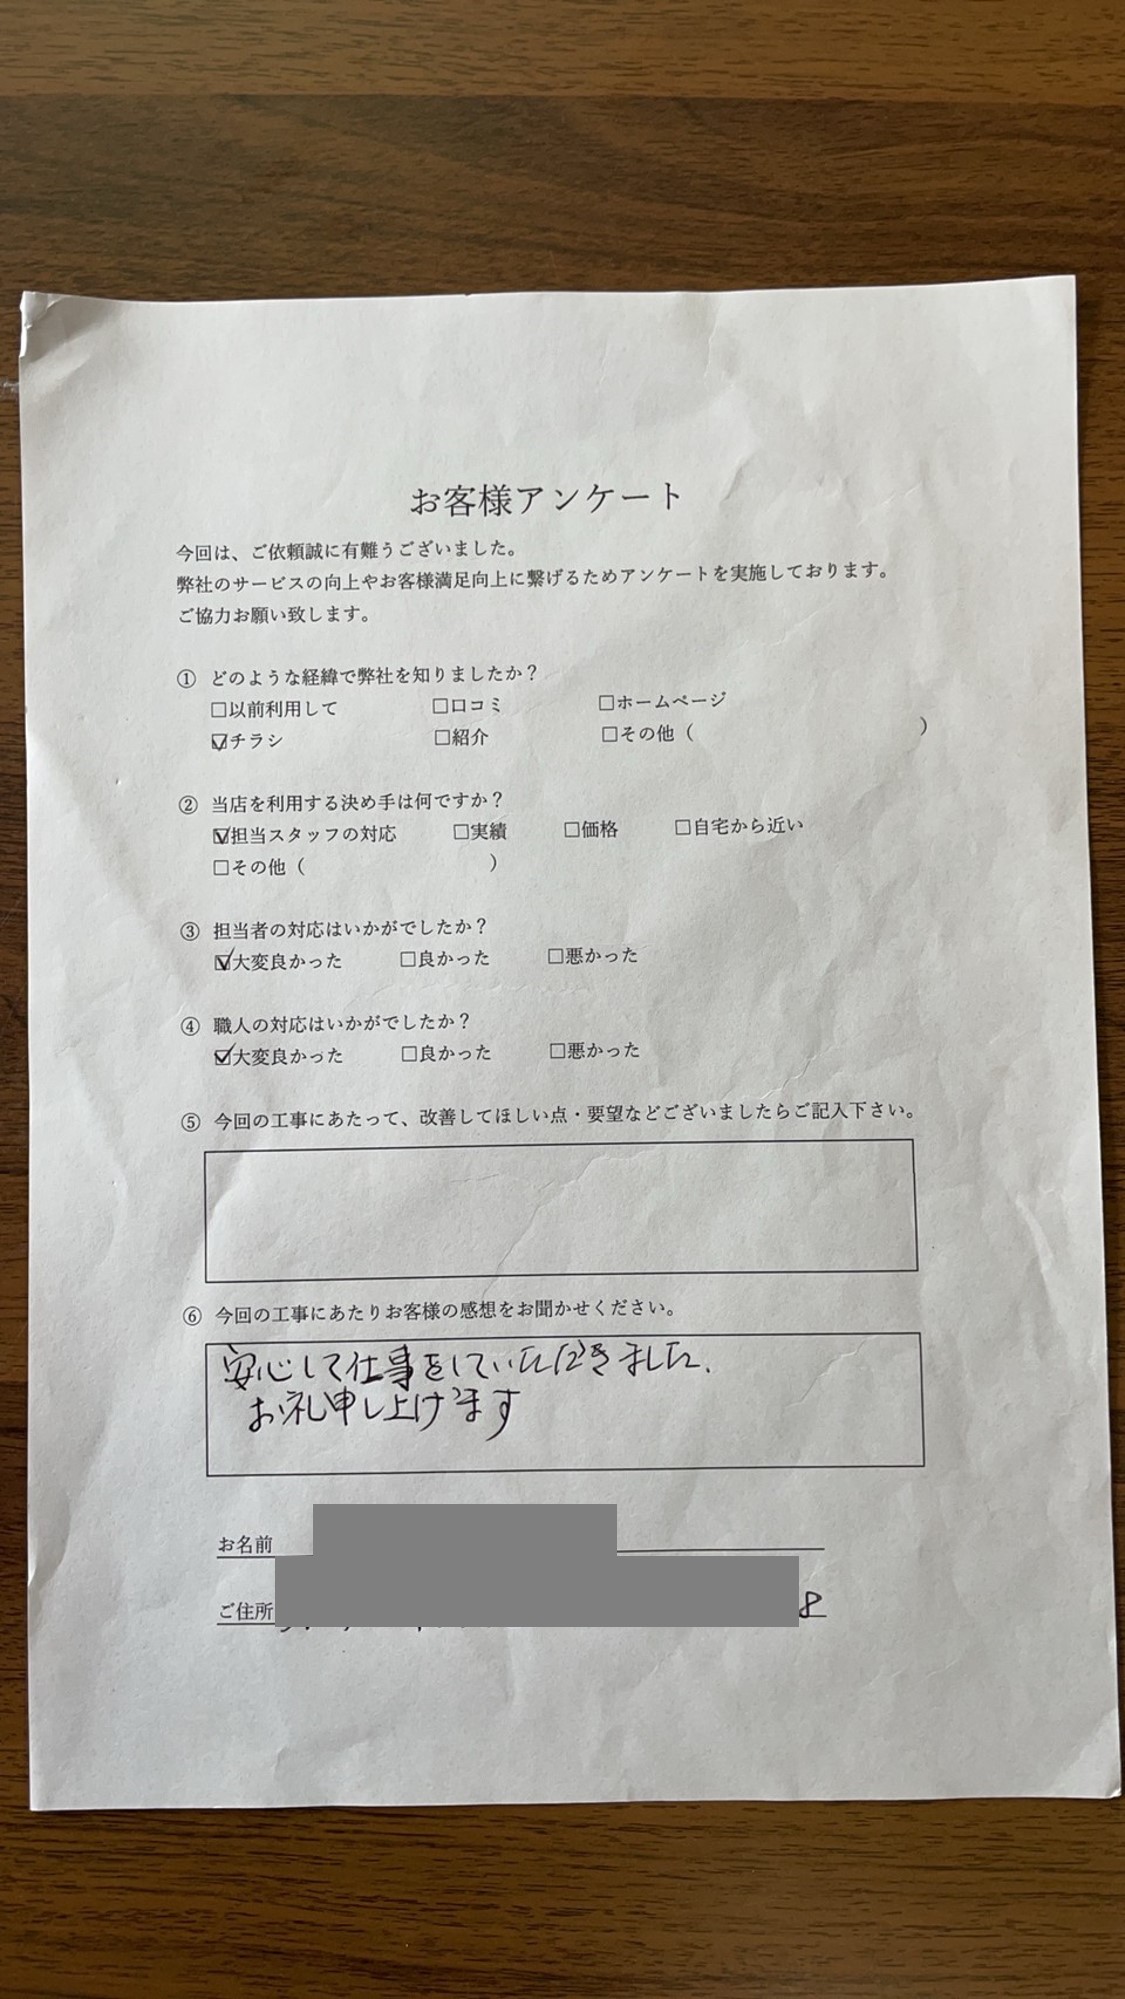 お客様アンケート
今回は、ご依頼誠に有難うございました。
弊社のサービスの向上やお客様満足向上に繋げるためアンケートを実施しております。
ご協力お願い致します。
① どのような経緯で弊社を知りましたか？
□以前利用して □口コミ □ホームページ
☑チラシ □紹介 □その他（ ）
② 当店を利用する決め手は何ですか？
☑担当スタッフの対応 □実績 □価格 □自宅から近い
□その他（ ）
③ 担当者の対応はいかがでしたか？
☑大変良かった □良かった □悪かった
④ 職人の対応はいかがでしたか？
☑大変良かった □良かった □悪かった
⑤ 今回の工事にあたって、改善してほしい点・要望などございましたらご記入下さい。
⑥ 今回の工事にあたりお客様の感想をお聞かせください。
安心して仕事をしていただきました.
お礼申し上げます
お名前
ご住所 8